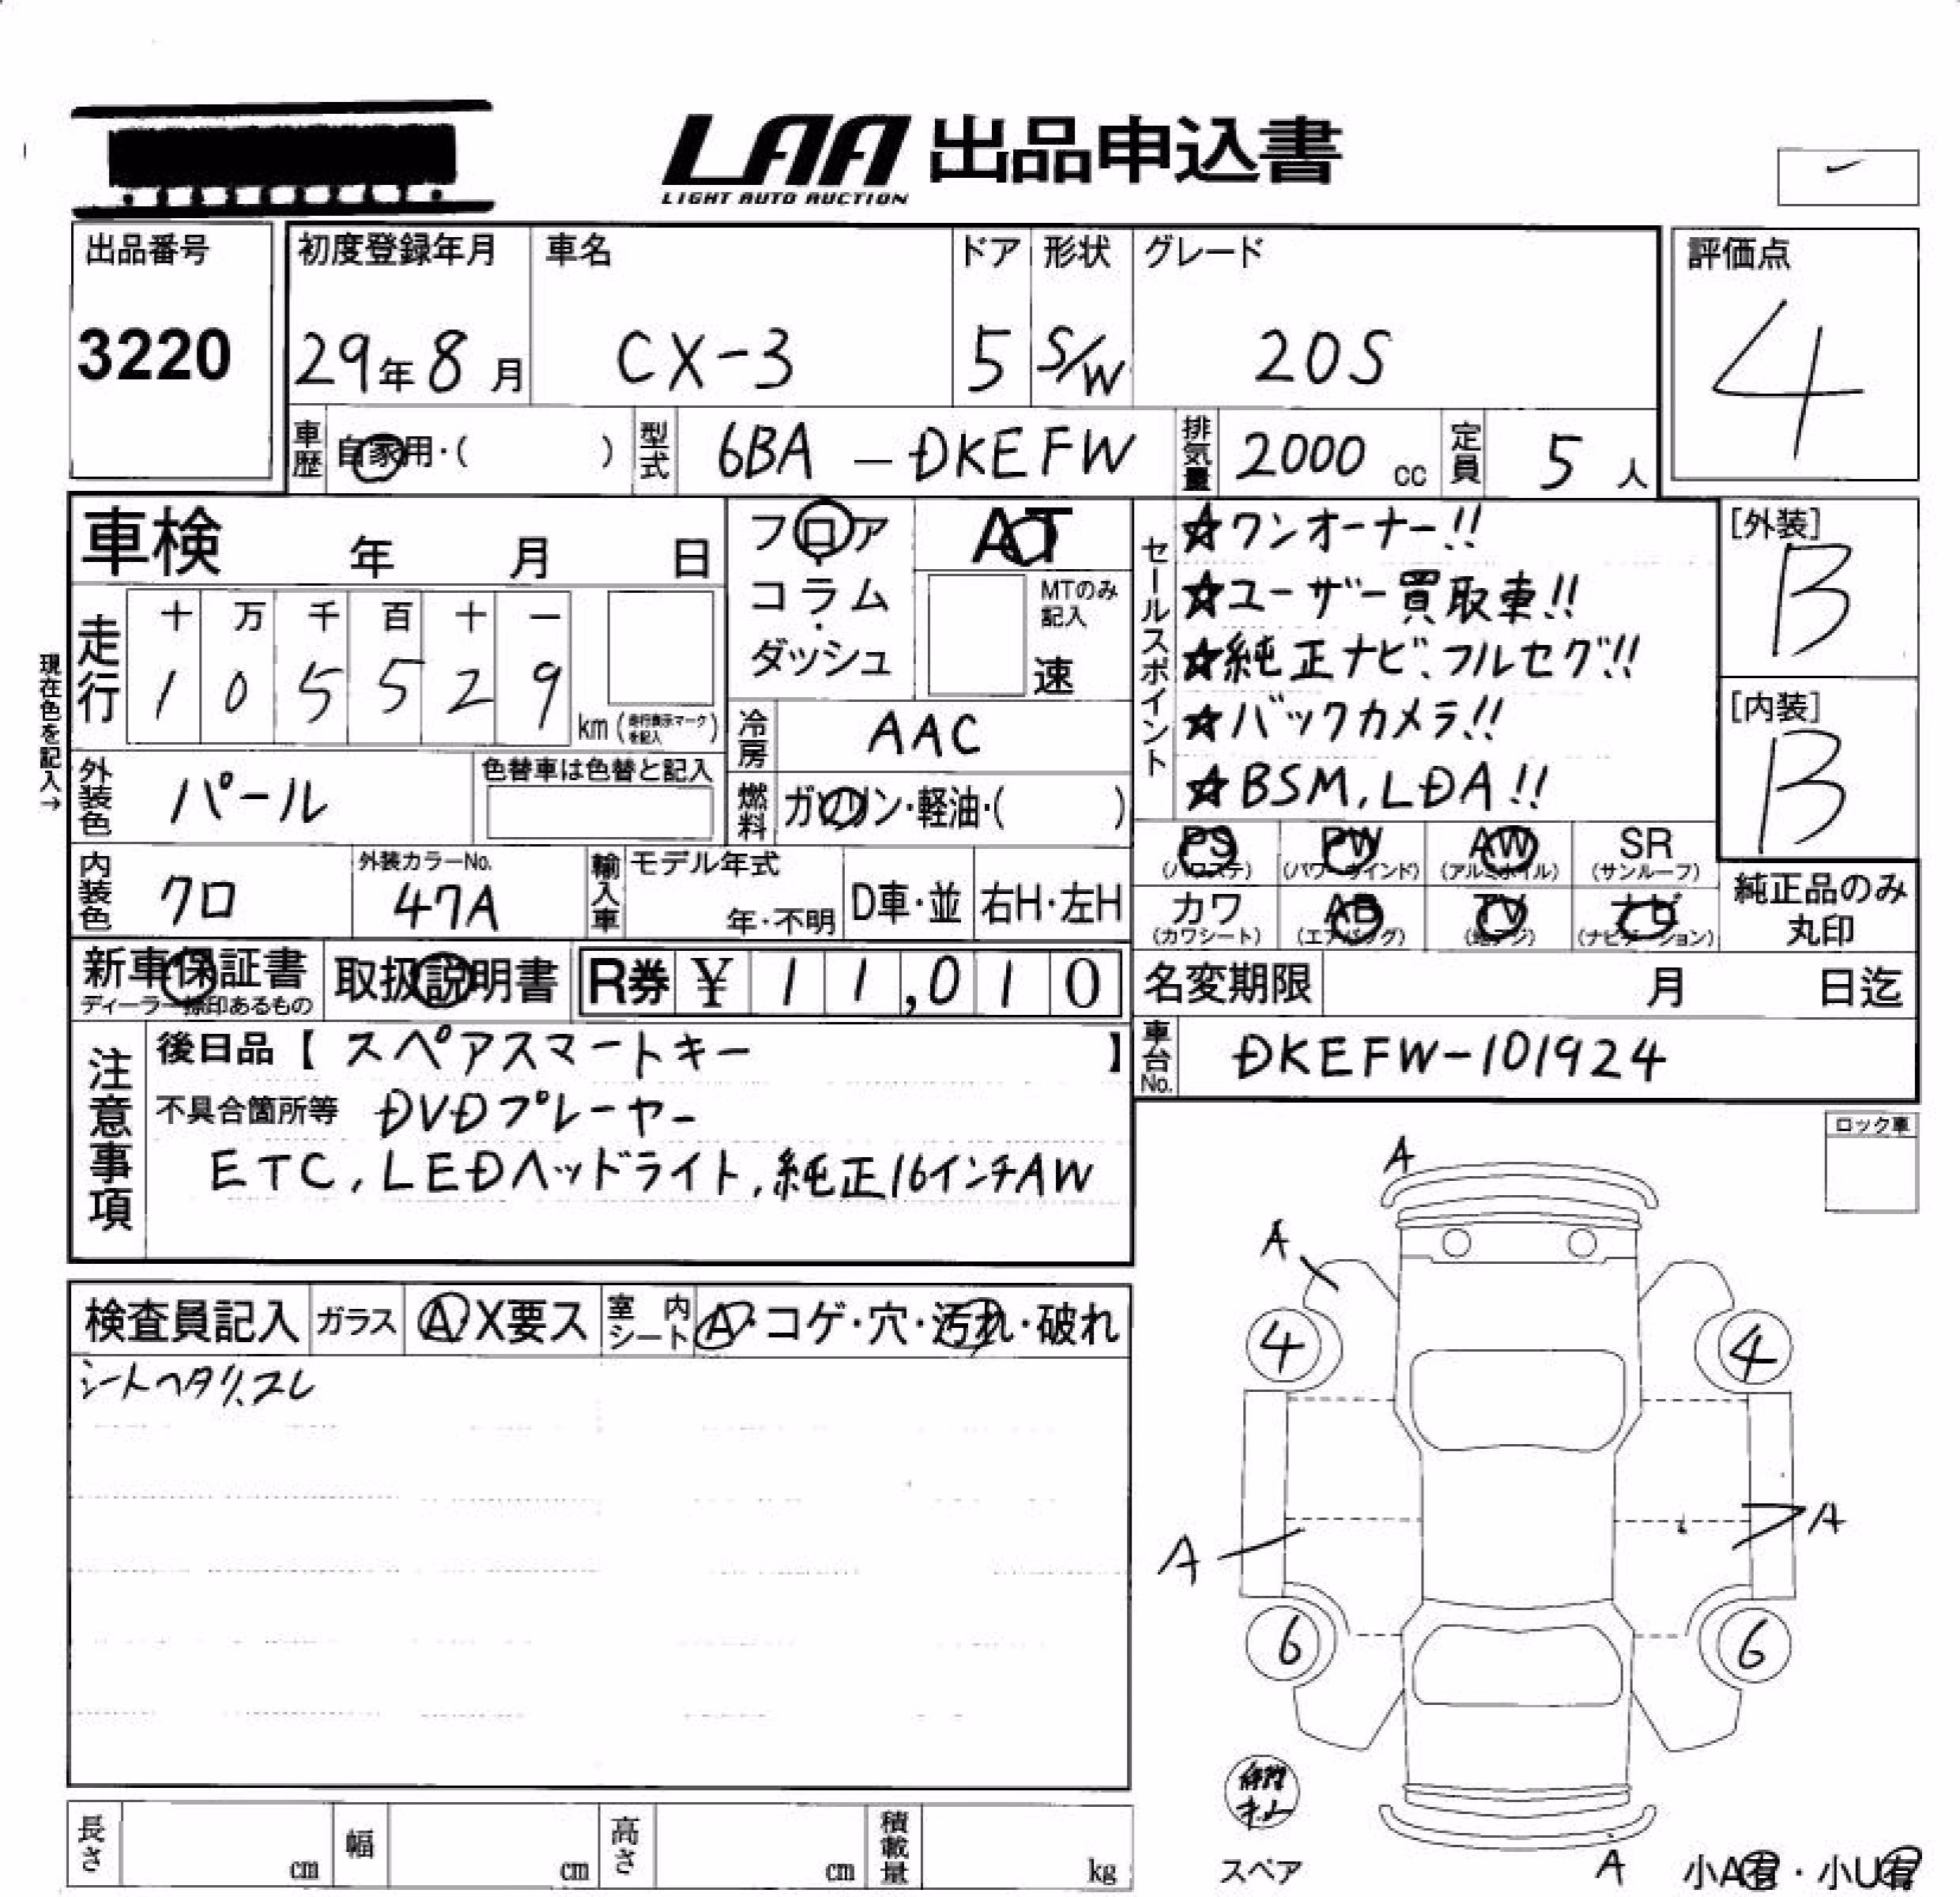 LAA 出品申込書
LIGHT AUTO AUCTION
出品番号
3220
初度登録年月
29年8月
車名
CX-3
ドア
5
形状
S/W
グレード
20S
評価点
4
車歴
自家用・( )
型式
6BA - DKEFW
排気量
2000 cc
定員
5 人
車検 年 月 日
フロア
コラム
・
ダッシュ
AT
MTのみ
記入
速
セールスポイント
☆ワンオーナー!!
☆ユーザー買取車!!
☆純正ナビ、フルセグ!!
☆バックカメラ!!
☆BSM, LDA!!
[外装]
B
[内装]
B
現在色を記入→
走行
十 万 千 百 十 一
1 0 5 5 2 9
km (走行表示マークを記入)
冷房
AAC
外装色
パール
色替車は色替と記入
燃料
ガソリン・軽油・( )
内装色
クロ
外装カラーNo.
47A
輸入車
モデル年式
年・不明
D車・並
右H・左H
PS
(パワステ)
PW
(パワーウインド)
AW
(アルミホイル)
SR
(サンルーフ)
カワ
(カワシート)
AB
(エアバッグ)
TV
(地デジ)
ナビ
(ナビゲーション)
純正品のみ
丸印
新車保証書
ディーラー捺印あるもの
取扱説明書
R券 ¥ 11,010
名変期限 月 日迄
注意事項
後日品【 スペアスマートキー 】
不具合箇所等 DVDプレーヤー
ETC, LEDヘッドライト, 純正16インチAW
車台No.
DKEFW-101924
ロック車
検査員記入
ガラス
A X要ス
室内
シート
A・コゲ・穴・汚れ・破れ
シートヘタリ、スレ
A
A
4
4
A
A
6
6
スペア
A
小A有・小U有
長さ cm
幅 cm
高さ cm
積載量 kg